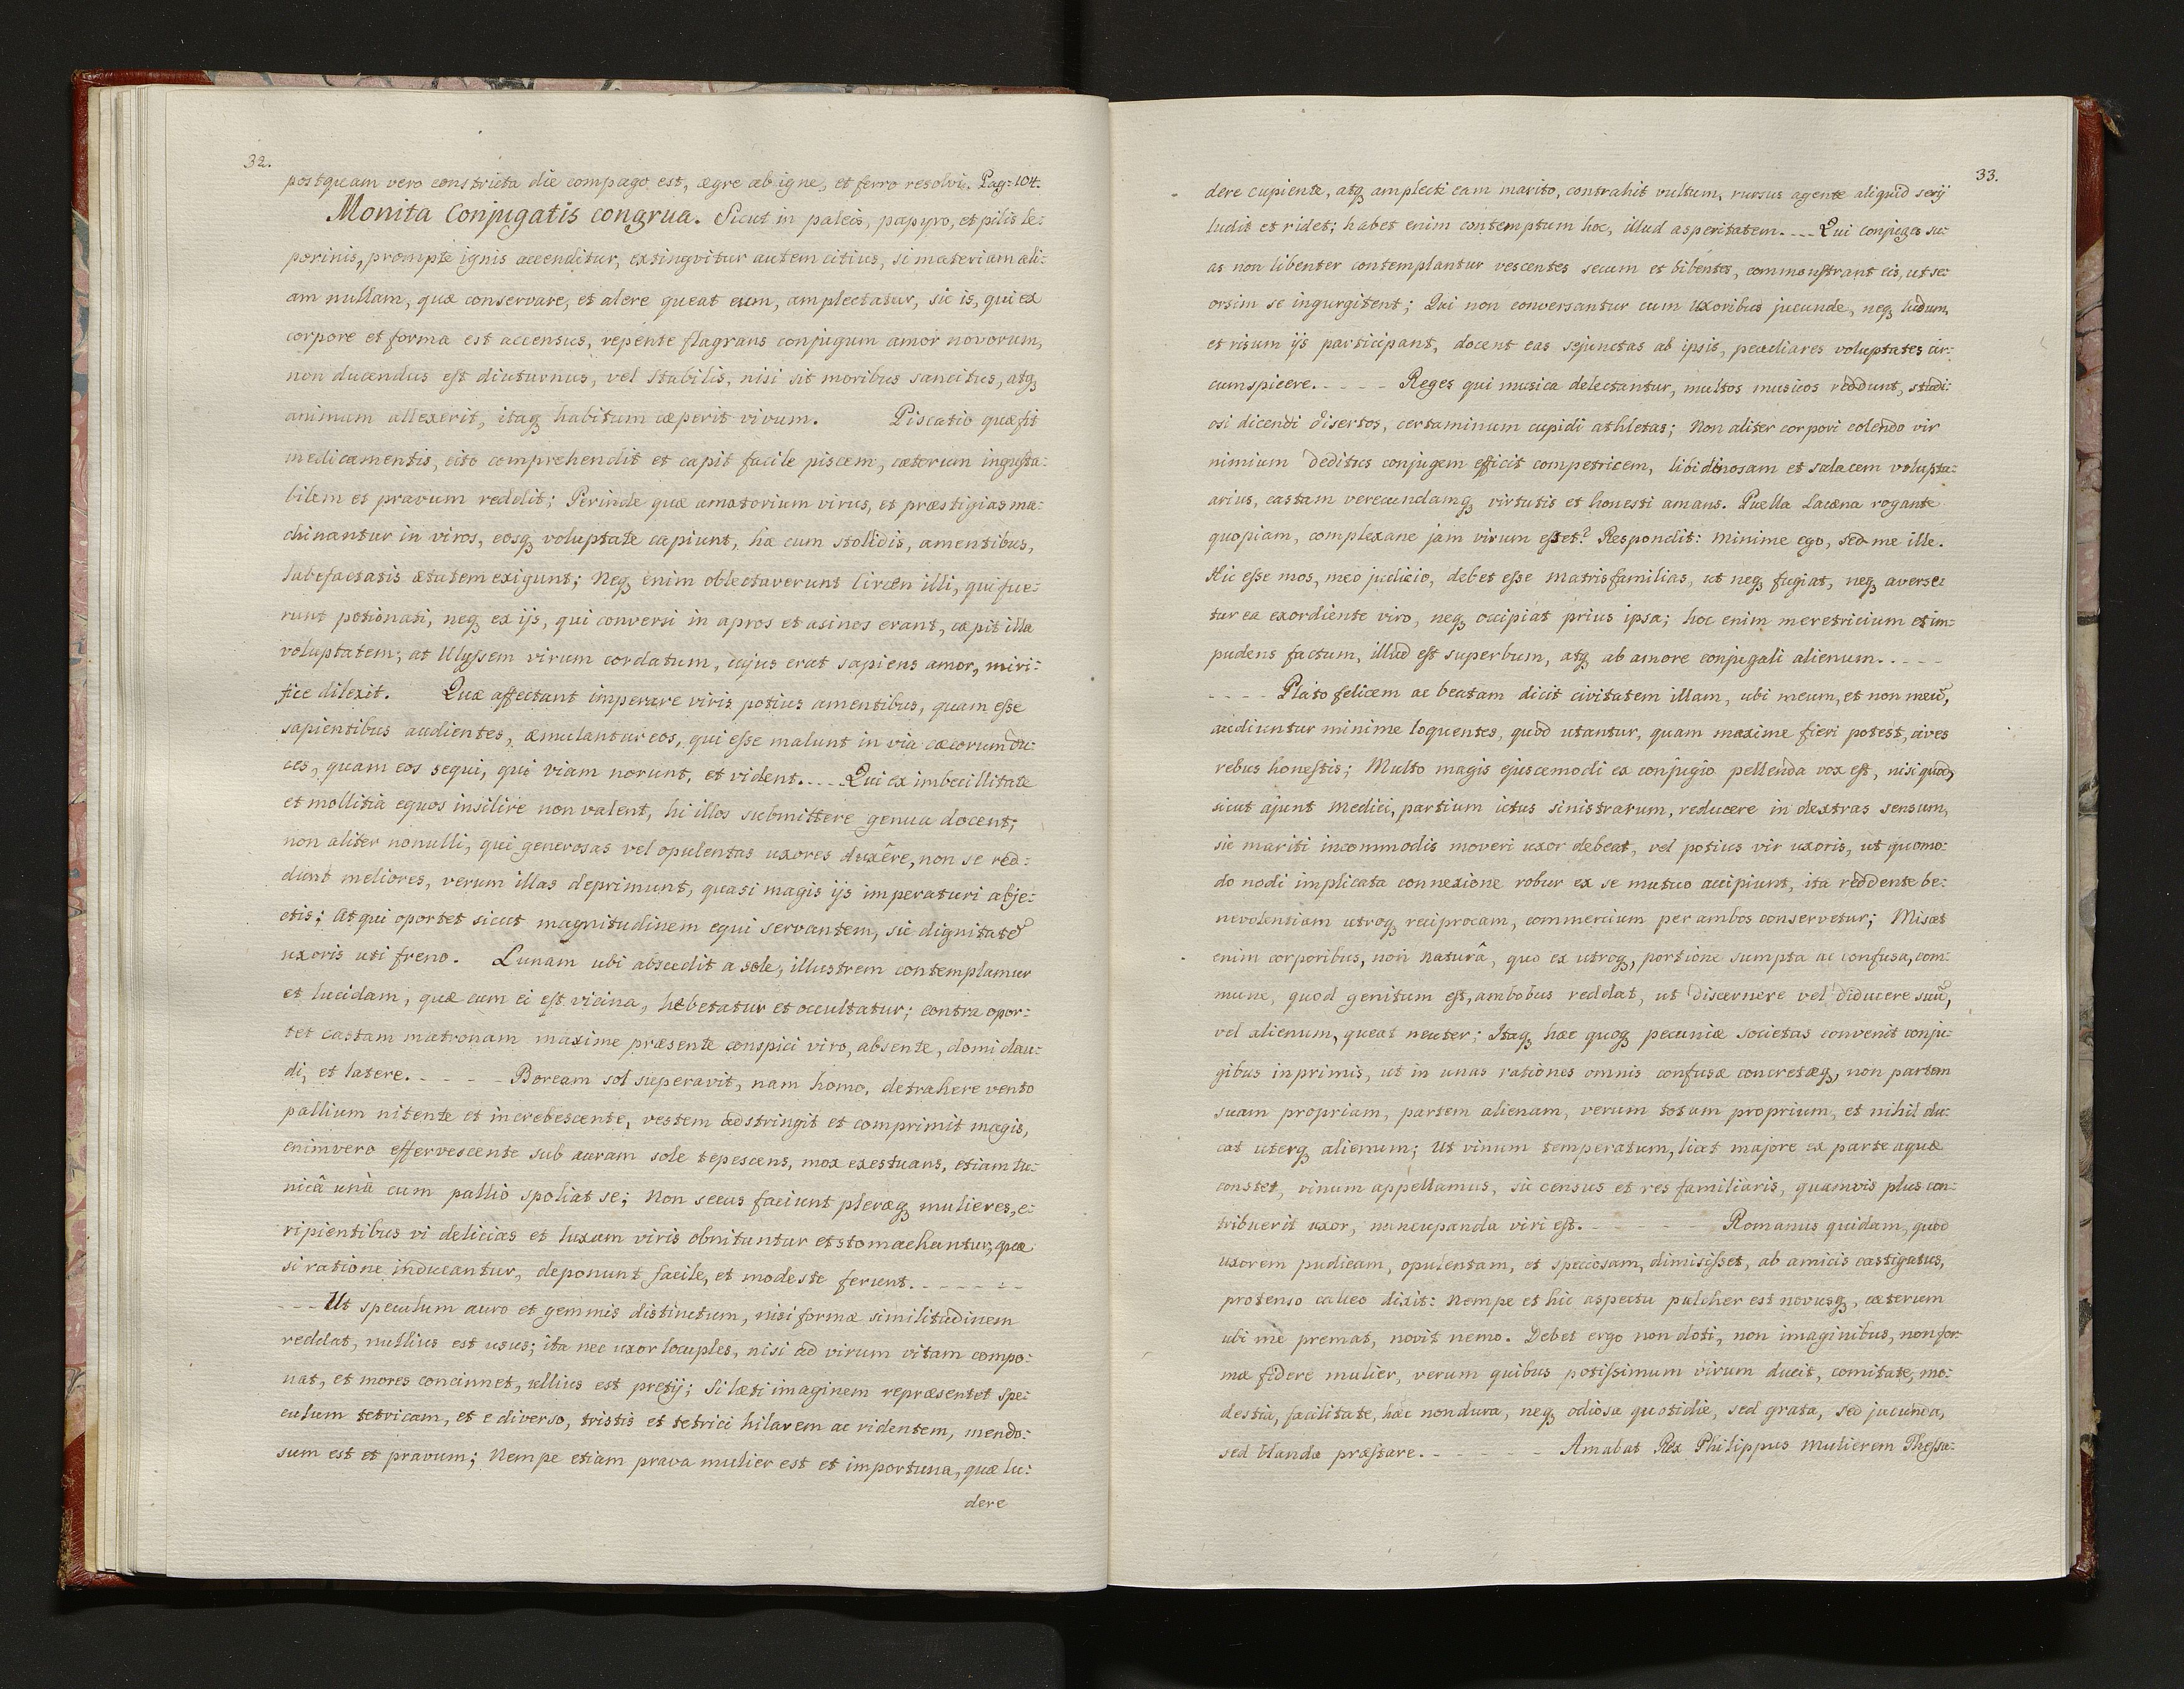 32.
postquam vero constricta die compago est, ægre ab igne, et ferro resolvi. Pag: 104.
Monita Conjugatis congrua. Sicut in paleis, papyro, et pilis le:
porinis, prompte ignis accenditur, extingvitur autem citius, si materiam ali:
am nullam, quæ conservare, et alere queat eum, amplectatur, sic is, qui ex
corpore et forma est accensus, repente flagrans conjugum amor novorum,
non ducendus est diuturnus, vel stabilis, nisi sit moribus sancitus, atq
animum allexerit, itaq habitum cæperit vivum. Piscatio quæ fit
medicamentis, cito comprehendit et capit facile piscem, cæterum ingusta:
bilem et pravum reddit; Perinde quæ amatorium virus, et præstigias ma:
chinantur in viros, eosq voluptate capiunt, hæ cum stolidis, amentibus,
labefactatis ætatem exigunt; Neq enim oblectaverunt Circen illi, qui fue:
runt potionati, neq ex ijs, qui conversi in apros et asinos erant, cæpit illa
voluptatem; at Ulyssem virum cordatum, cujus erat sapiens amor, miri:
fice dilexit. Quæ affectant imperare viris potius amentibus, quam esse
sapientibus audientes, æmulantur eos, qui esse malunt in via cæcorum du:
ces, quam eos sequi, qui viam norunt, et vident.... Qui ex imbecillitate
et mollitia equos insilire non valent, hi illos submittere genua docent;
non aliter nonulli, qui generosas vel opulentas uxores duxêre, non se red:
dunt meliores, verum illas deprimunt, quasi magis ijs imperaturi abje:
ctis; At qui oportet sicut magnitudinem equi servantem, sic dignitatē
uxoris uti freno. Lunam ubi abscedit a sole, illustrem contemplamur
et lucidam, quæ cum ei est vicina, hebetatur et occultatur; contra opor:
tet castam matronam maxime præsente conspici viro, absente, domi clau:
di, et latere. - - - - Boream sol superavit, nam homo, detrahere vento
pallium nitente et increbescente, vestem adstringit et comprimit magis,
enimvero effervescente sub auram sole tepescens, mox exestuans, etiam tu:
nicâ unà cum pallio spoliat se; Non secus faciunt pleræq mulieres, e:
ripientibus vi delicias et luxum viris obnituntur et stomachantur, quæ
si ratione inducantur, deponunt facile, et modeste ferunt. - - - - - -
- - - Ut speculum auro et gemmis distinctum, nisi formæ similitudinem
reddat, nullius est usus; ita nec uxor locuples, nisi ad virum vitam compo:
nat, et mores concinnet, ullius est pretij; Si læti imaginem repræsentet spe:
culum tetricam, et e diverso, tristis et tetrici hilarem ac ridentem, mendo:
sum est et pravum; Nempe etiam prava mulier est et importuna, quæ lu:
dere
33.
dere cupiente, atq amplecti eam marito, contrahit vultum, rursus agente aliquid serij
ludit et ridet; habet enim contemptum hoc, illud asperitatem.... Qui conjuges su:
as non libenter contemplantur vescentes secum et bibentes, commonstrant eis, ut se:
orsim se ingurgitent; Qui non conversantur cum uxoribus jucunde, neq ludum,
et risum ijs participant, docent eas sejunctas ab ipsis, peculiares voluptates cir:
cumspicere. - - - - - Reges qui musica delectantur, multos musicos reddunt, studi:
osi dicendi disertos, certaminum cupidi athletas; Non aliter corpori colendo vir
nimium deditus conjugem efficit competricem, libidinosam et salacem volupta:
arius, castam verecundamq virtutis et honesti amans. Puella Lacæna rogante
quopiam, complexane jam virum esset? Respondit: Minime ego, sed me ille.
Hic esse mos, meo judicio, debet esse matrisfamilias, ut neq fugiat, neq averse:
tur ea exordiente viro, neq occipiat prius ipsa; hoc enim meretricium et im:
pudens factum, illud est superbum, atq ab amore conjugali alienum. - - - -
- - - - Plato felicem ac beatam dicit civitatem illam, ubi meum, et non meū,
audiuntur minime loquentes, quòd utantur, quam maxime fieri potest, cives
rebus honestis; Multo magis ejuscemodi ex conjugio pellenda vox est, nisi quod,
sicut ajunt medici, partium ictus sinistrarum, reducere in dextras sensum,
sic mariti incommodis moveri uxor debeat, vel potius vir uxoris, ut quomo:
do nodi implicata connexione robur ex se mutuo accipiunt, ita reddente be:
nevolentiam utroq reciprocam, commercium per ambos conservetur; Miscet
enim corporibus, non naturâ, quo ex utroq, portione sumpta ac confusa, com:
mune, quod genitum est, ambobus reddat, ut discernere vel diducere suū,
vel alienum, queat neuter; Itaq hæc quoq pecuniæ societas convenit conju:
gibus inprimis, ut in unas rationes omnis confusæ concretæq, non partem
suam propriam, partem alienam, verum totam propriam, et nihil du:
cat uterq alienum; Ut vinum temperatum, licet majore ex parte aquæ
constet, vinum appellamus, sic census et res familiaris, quamvis plus con:
tribuerit uxor, nuncupanda viri est. - - - - - - Romanus quidam, quod
uxorem pudicam, opulentam, et speciosam, dimisisset, ab amicis castigatus,
protenso calceo dixit: Nempe et hic aspectu pulcher est novusq, cæterum
ubi me premat, novit nemo. Debet ergo non doti, non imaginibus, non for:
mæ fidere mulier, verum quibus potissimum virum ducit, comitate, mo:
destia, facilitate, hæc non dura, neq odiosa quotidie, sed grata, sed jucunda,
sed blanda præstare. - - - - - - Amabat Rex Philippus mulierem Thessa: